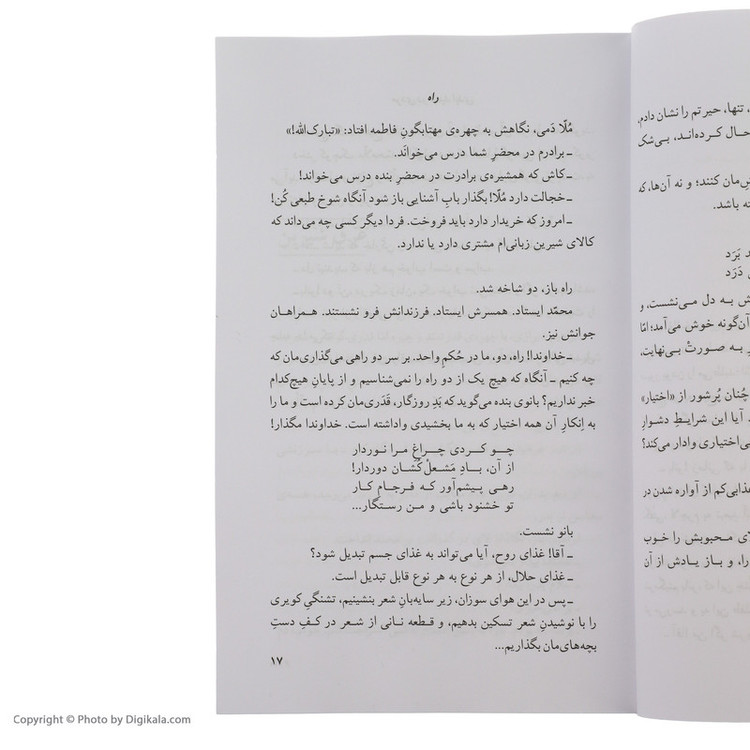 راه
مُلّا دَمی، نگاهش به چهره‌ی مهتابگونِ فاطمه افتاد: «تبارک‌الله!»
ـ برادرم در محضرِ شما درس می‌خوانَد.
ـ کاش که همشیره‌ی برادرت در محضرِ بنده درس می‌خوانْد!
ـ خجالت دارد مُلّا! بگذار بابِ آشنایی باز شود آنگاه شوخ طبعی کُن!
ـ امروز که خریدار دارد باید فروخت. فردا دیگر کسی چه می‌داند که
کالای شیرین زبانی‌ام مشتری دارد یا ندارد.
راه باز، دو شاخه شد.
محمّد ایستاد. همسرش ایستاد. فرزندانش فرو نشستند. همراهان
جوانش نیز.
ـ خداوندا! راه، دو، ما در حُکمِ واحد. بر سر دو راهی می‌گذاری‌مان که
چه کنیم ـ آنگاه که هیچ یک از دو راه را نمی‌شناسیم و از پایانِ هیچ‌کدام
خبر نداریم؟ بانوی بنده می‌گوید که بَدِ روزگار، قَدَری‌مان کرده است و ما را
به اِنکارِ آن همه اختیار که به ما بخشیدی واداشته است. خداوندا مگذار!
چـو کـردی چـراغِ مـرا نـوردار
از آن، بـادِ مَشعلْ کُشان دوردار!
رهـی پیشم‌آور کـه فـرجـامِ کـار
تو خشنود باشی و من رستگار...
بانو نشست.
ـ آقا! غذای روح، آیا می‌تواند به غذای جسم تبدیل شود؟
ـ غذای حلال، از هر نوع به هر نوع قابل تبدیل است.
ـ پس در این هوای سوزان، زیر سایه‌بانِ شعر بنشینیم، تشنگیِ کویری
را با نوشیدنِ شعر تسکین بدهیم، و قـطعه نـانی از شـعر در کـفِ دستِ
بچه‌های‌مان بگذاریم...
۱۷
، تنها، حیرتم را نشان دادم،
حال کرده‌اند، بی‌شک
ش‌مان کنند؛ و نه آن‌ها، که
ته باشد.
د بَرَد
دَرَد
ش به دل می‌نشست، و
آن‌گونه خوش می‌آمد؛ امّا
به صورتْ بی‌نهایت،
چُنان پُرشور از «اختیار»
آیا این شرایطِ دشوار
ی‌اختیاری وادار می‌کند؟
غذایی‌کم از آواره شدن در
محبوبش را خوب
را، و باز یادش از آن
Copyright © Photo by Digikala.com